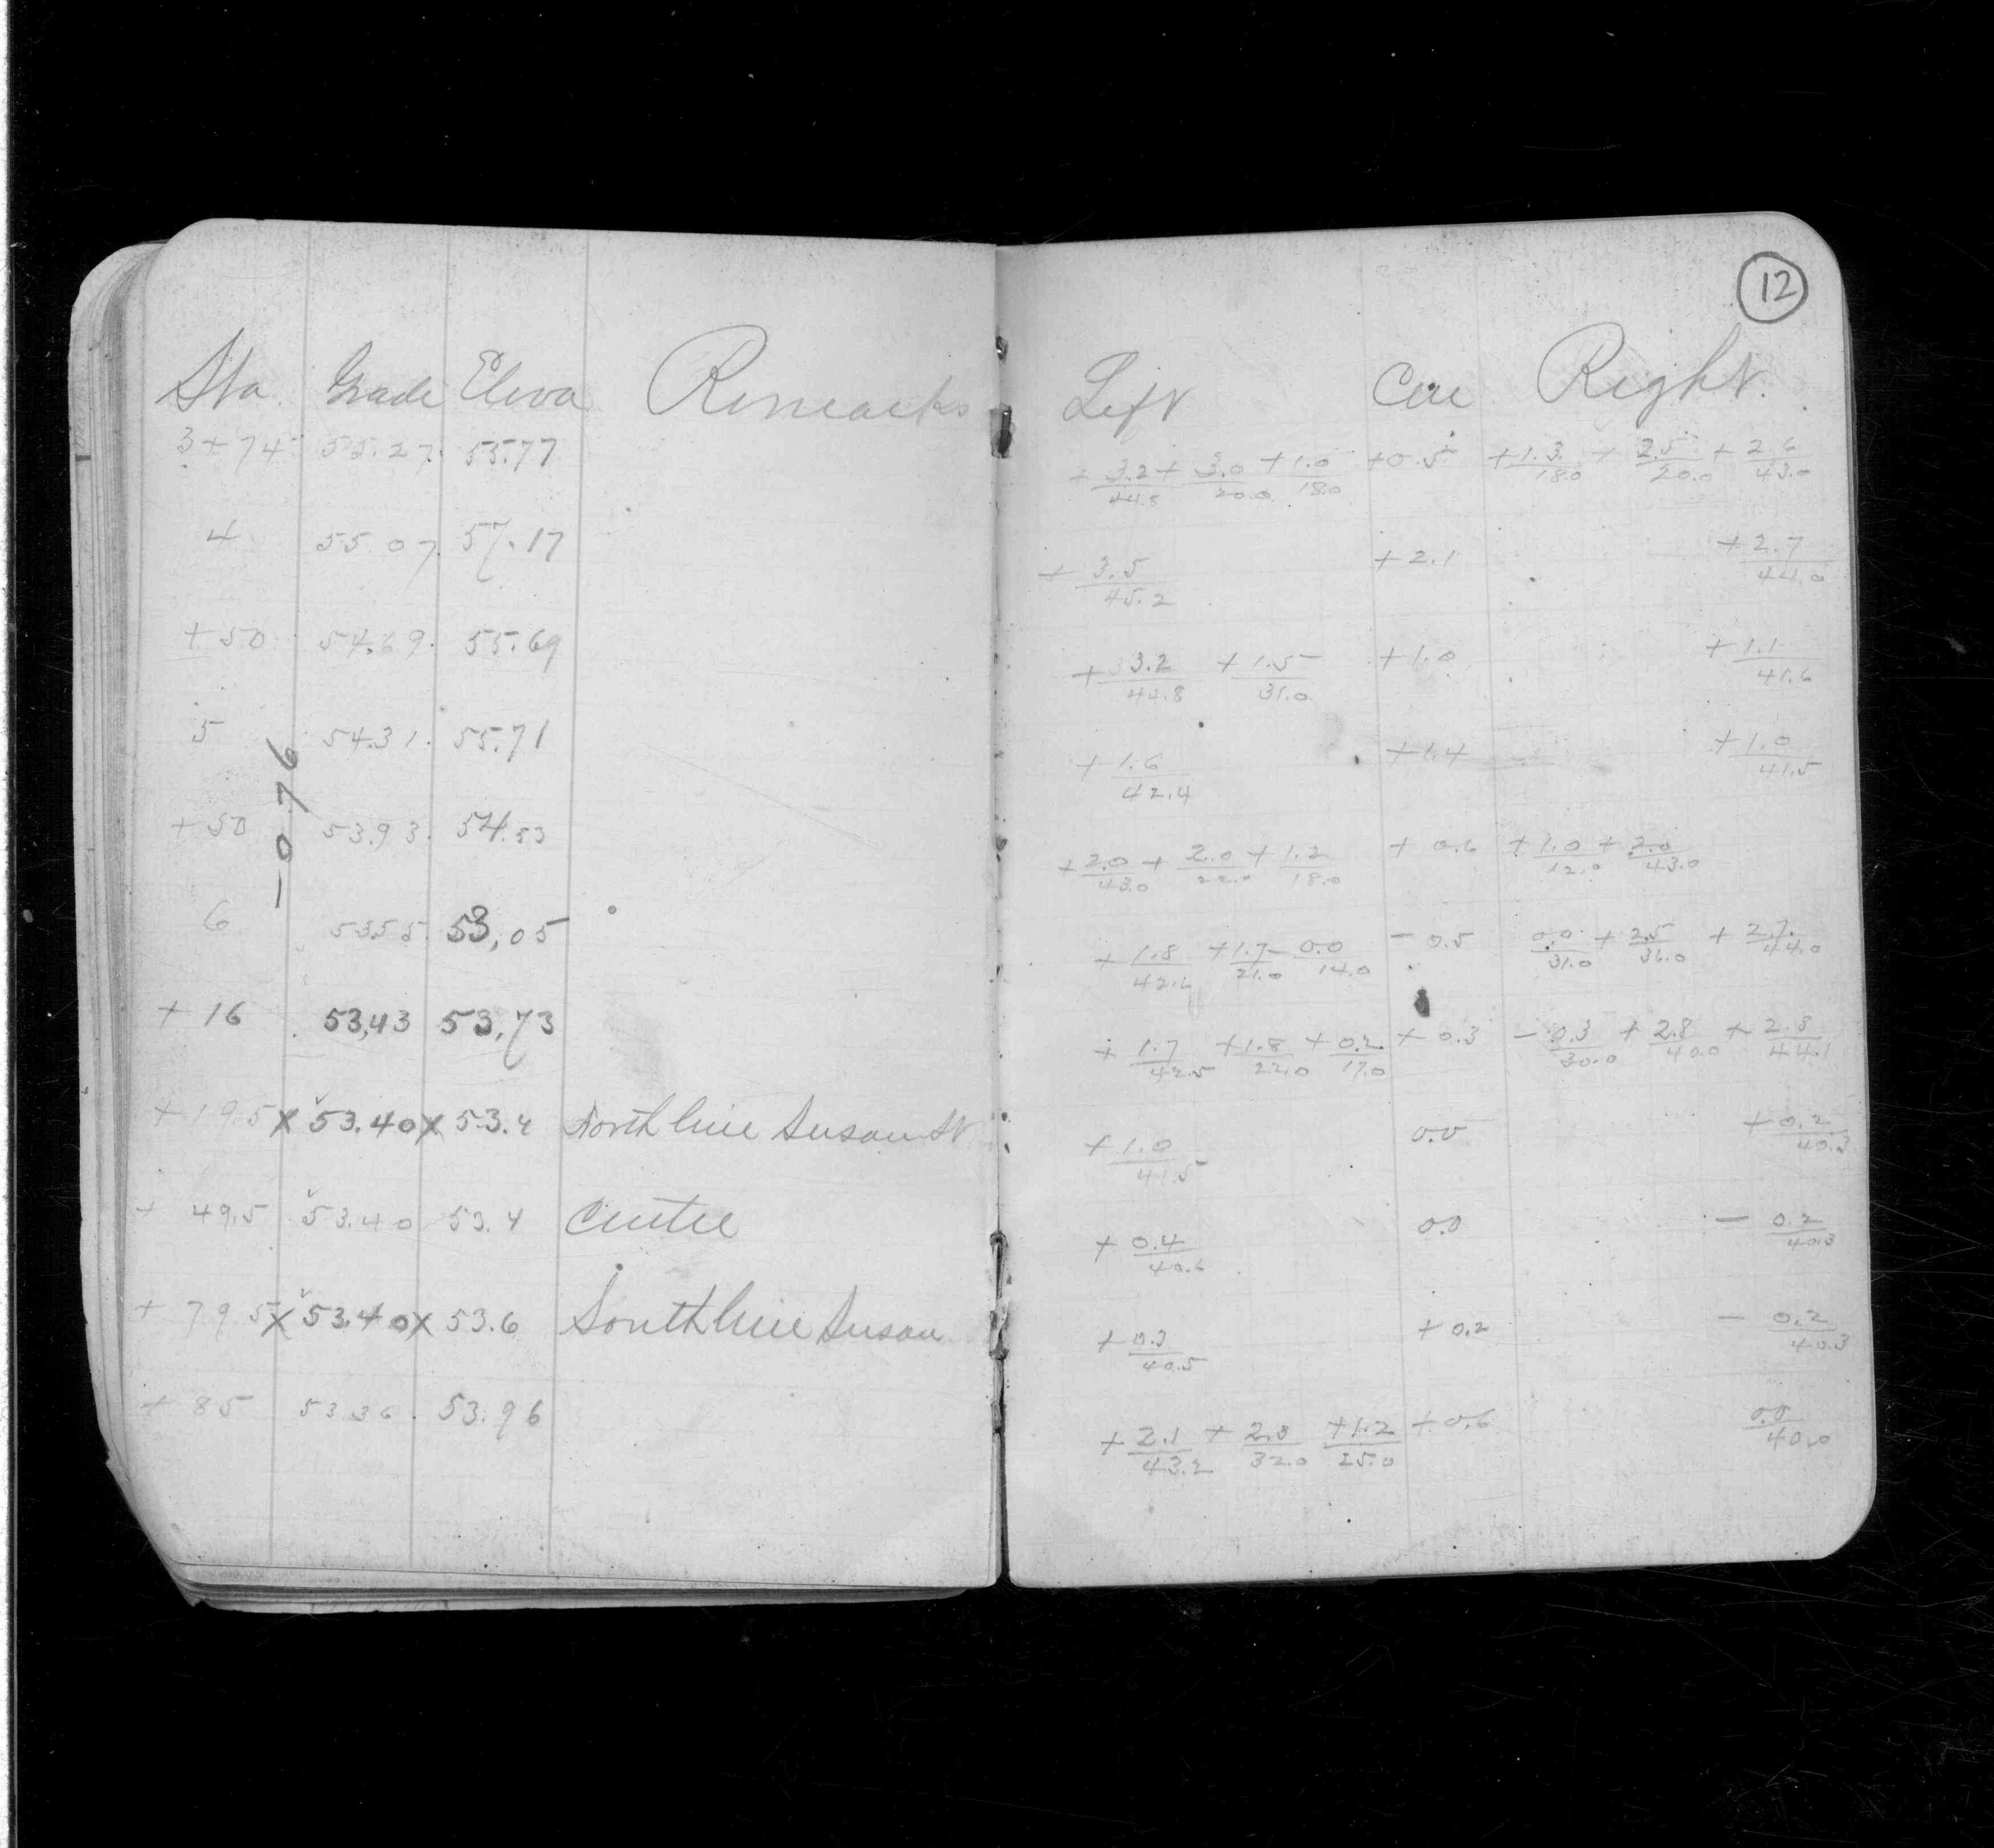 12
Sta Grade Eleva Remarks Left Cen Right.
3+74 55.27 55.77 +3.2/44.8 +3.0/20.0 +1.0/18.0 +0.5 +1.3/18.0 +2.5/20.0 +2.6/43.0
4 55.07 57.17 +3.5/45.2 +2.1 +2.7/44.0
+50 54.69 55.69 +3.2/44.8 +1.5/31.0 +1.0 +1.1/41.6
5 54.31 55.71 +1.6/42.4 +1.4 +1.0/41.5
-0.76
+50 53.93 54.53 +2.0/43.0 +2.0/22.0 +1.2/18.0 +0.6 +1.0/12.0 +2.0/43.0
6 53.55 53,05 +1.8/42.6 +1.7/21.0 -0.0/14.0 -0.5 0.0/31.0 +2.5/36.0 +2.7/44.0
+16 53,43 53,73 +1.7/42.5 +1.8/22.0 +0.2/17.0 +0.3 -0.3/30.0 +2.8/40.0 +2.8/44.1
+19.5 x 53.40 x 53.4 North line Susan St +1.0/41.5 0.0 +0.2/40.3
+49.5 53.40 53.4 Center +0.4/40.6 0.0 -0.2/40.3
+79.5 x 53.40 x 53.6 South line Susan +0.3/40.5 +0.2 -0.2/40.3
+85 53.36 53.96 +2.1/43.2 +2.3/32.0 +1.2/25.0 +0.6 0.0/40.0